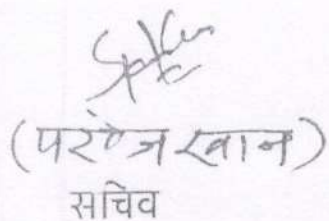 (परवेज खान)
सचिव